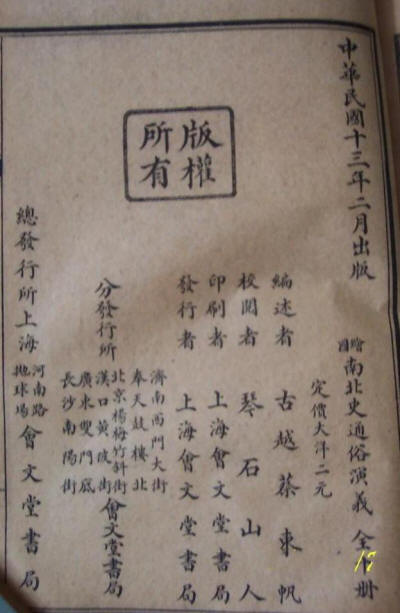 中華民國十三年二月出版
繪圖南北史通俗演義 全册
定價大洋二元
編述者 古越蔡東帆
校閱者 琴石山人
印刷者 上海會文堂書局
發行者 上海會文堂書局
版權
所有
分發行所
濟南西門大街
奉天鼓樓北
北京楊梅竹斜街
漢口黃陂街
廣東雙門底
長沙南陽街
會文堂書局
總發行所上海
河南路
拋球場
會文堂書局